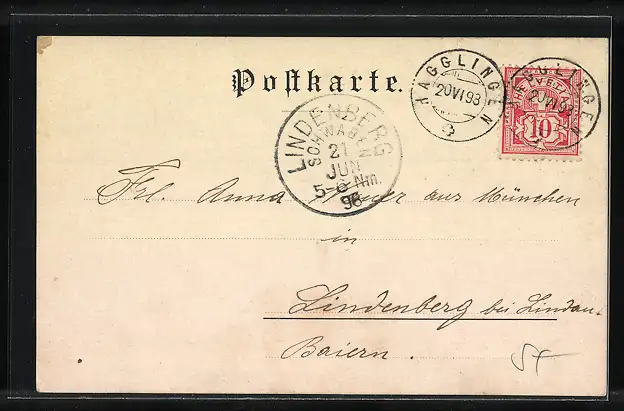 Postkarte.
HÄGGLINGEN
20 VI 98
HÄGGLINGEN
20 VI 98
HELVETIA
10
LINDENBERG
SCHWABEN
21
JUN
5-6 Nm.
98
Frl. Anna aus München
in
Lindenberg bei Lindau.
Baiern.